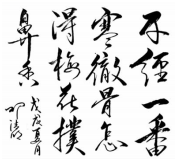 不经一番
寒徹骨怎
得梅花撲
鼻香
戊戌夏月